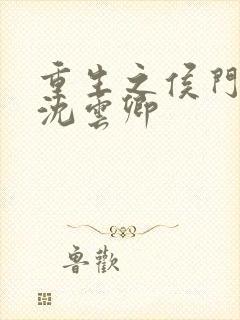 重生之侯門
沈雲卿
魯歡